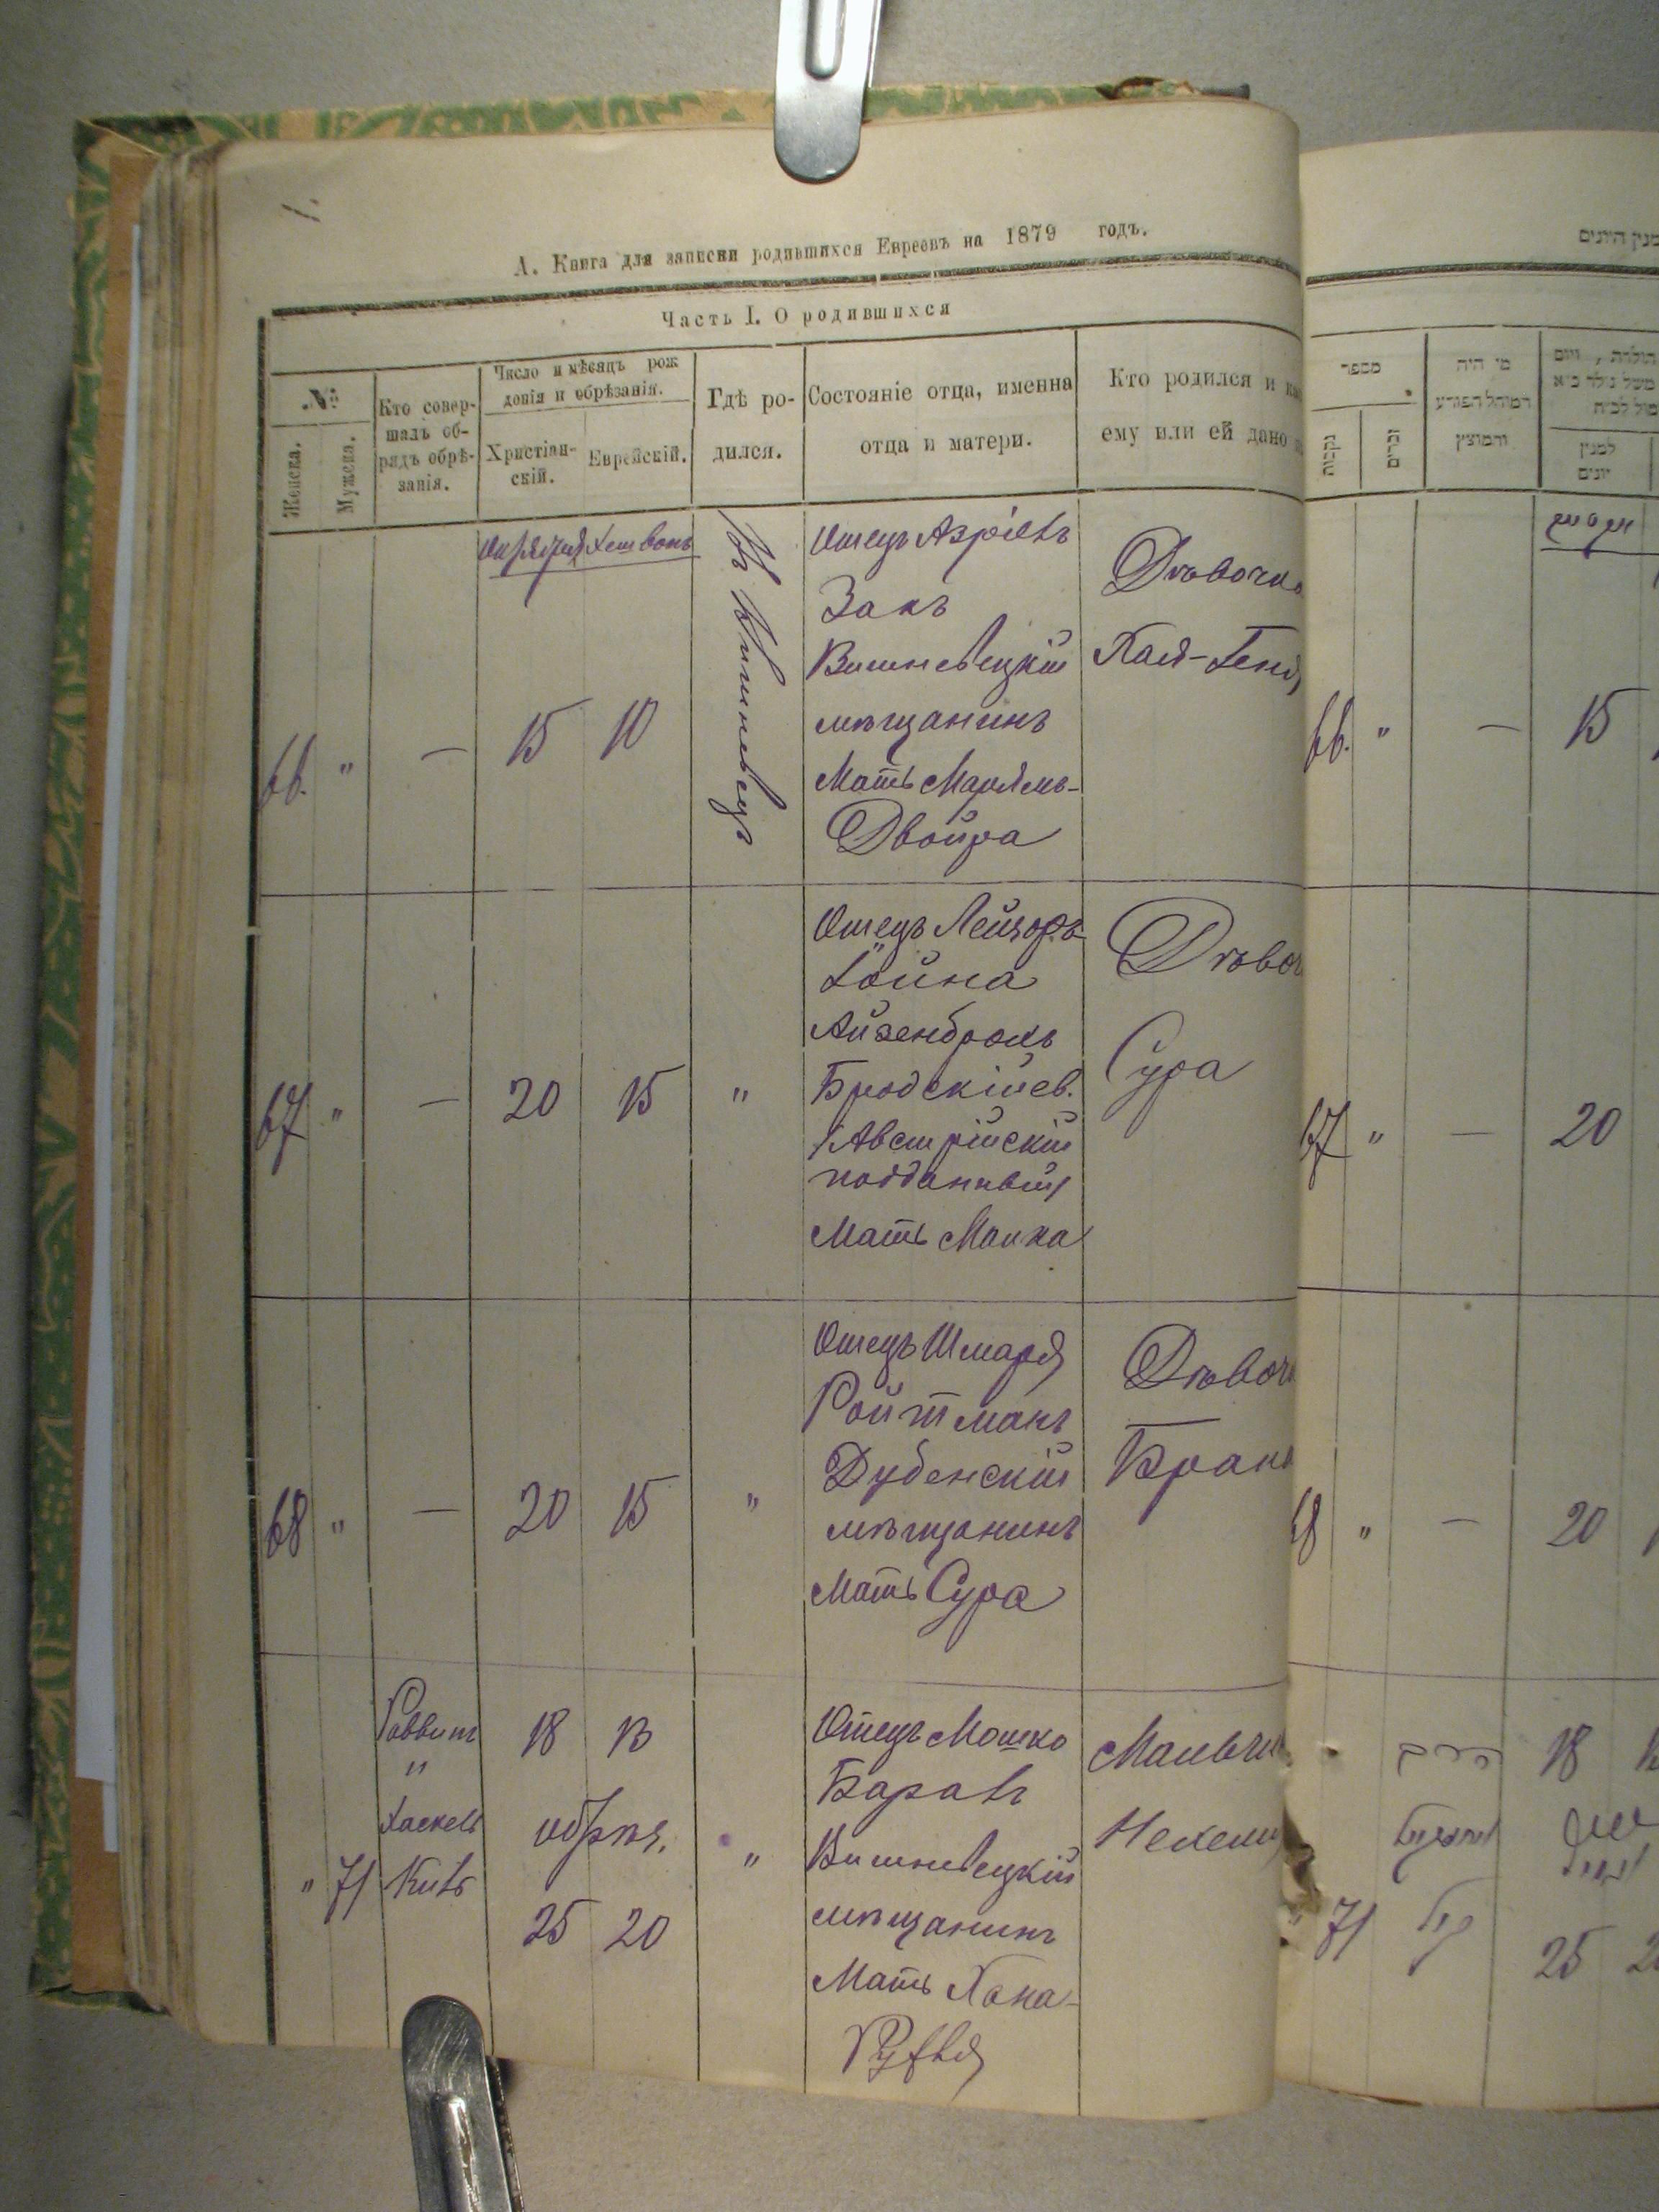 1.
А. Книга для записки родившихся Евреевъ на 1879 годъ.
Часть I. О родившихся
№
Женска.
Мужска.
Кто совер-
шалъ об-
рядъ обрѣ-
занія.
Число и мѣсяцъ рож
денія и обрѣзанія.
Христіан-
скій.
Еврейскій.
Гдѣ ро-
дился.
Состояніе отца, имена
отца и матери.
Кто родился и
ему или ей дано
Октября Хешвонъ
66. " — 15 10
въ Вишневецъ
Отецъ Азріель
Закъ
Вишневецкій
мѣщанинъ
Мать Маріямъ-
Двойра
Дѣвочка
Хая-Геня
67 " — 20 15 "
Отецъ Лейзоръ-
Іойна
Бродскій ев.
Австрійскій
подданный
Мать
Дѣвоч
Сура
68 " — 20 15 "
Отецъ Шмаря
Ройтманъ
Дубенскій
мѣщанинъ
Мать Сура
Дѣвоч
" 71
Раввинъ
"
Хаскель
18 13
обрѣз.
25 20
"
Отецъ Мошко
Вишневецкій
мѣщанинъ
Мать Хана-
Мальчи
Нехем
מספר
נקבות
זכרים
מי היה
המוהל הפורע
והמוצץ
למנין
יונים
למנין היונים
66. " — 15
67 " — 20
68 " — 20
18
71
25